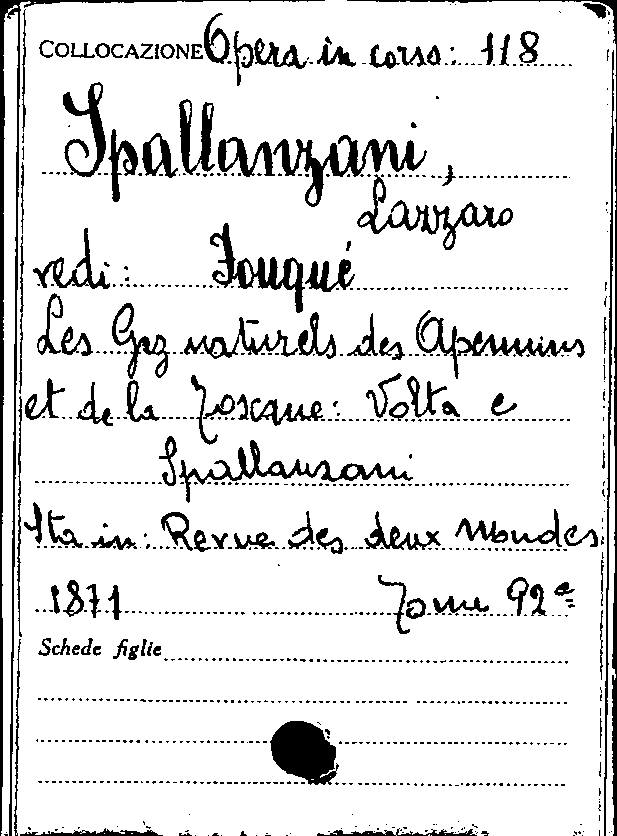 COLLOCAZIONE Opera in corso: 118
Spallanzani,
Lazzaro
vedi: Fouqué
Les Gaz naturels des Apennins
et de la Toscane: Volta e
Spallanzani
Sta in: Revue des deux Mondes
1871 Tome 92e
Schede figlie